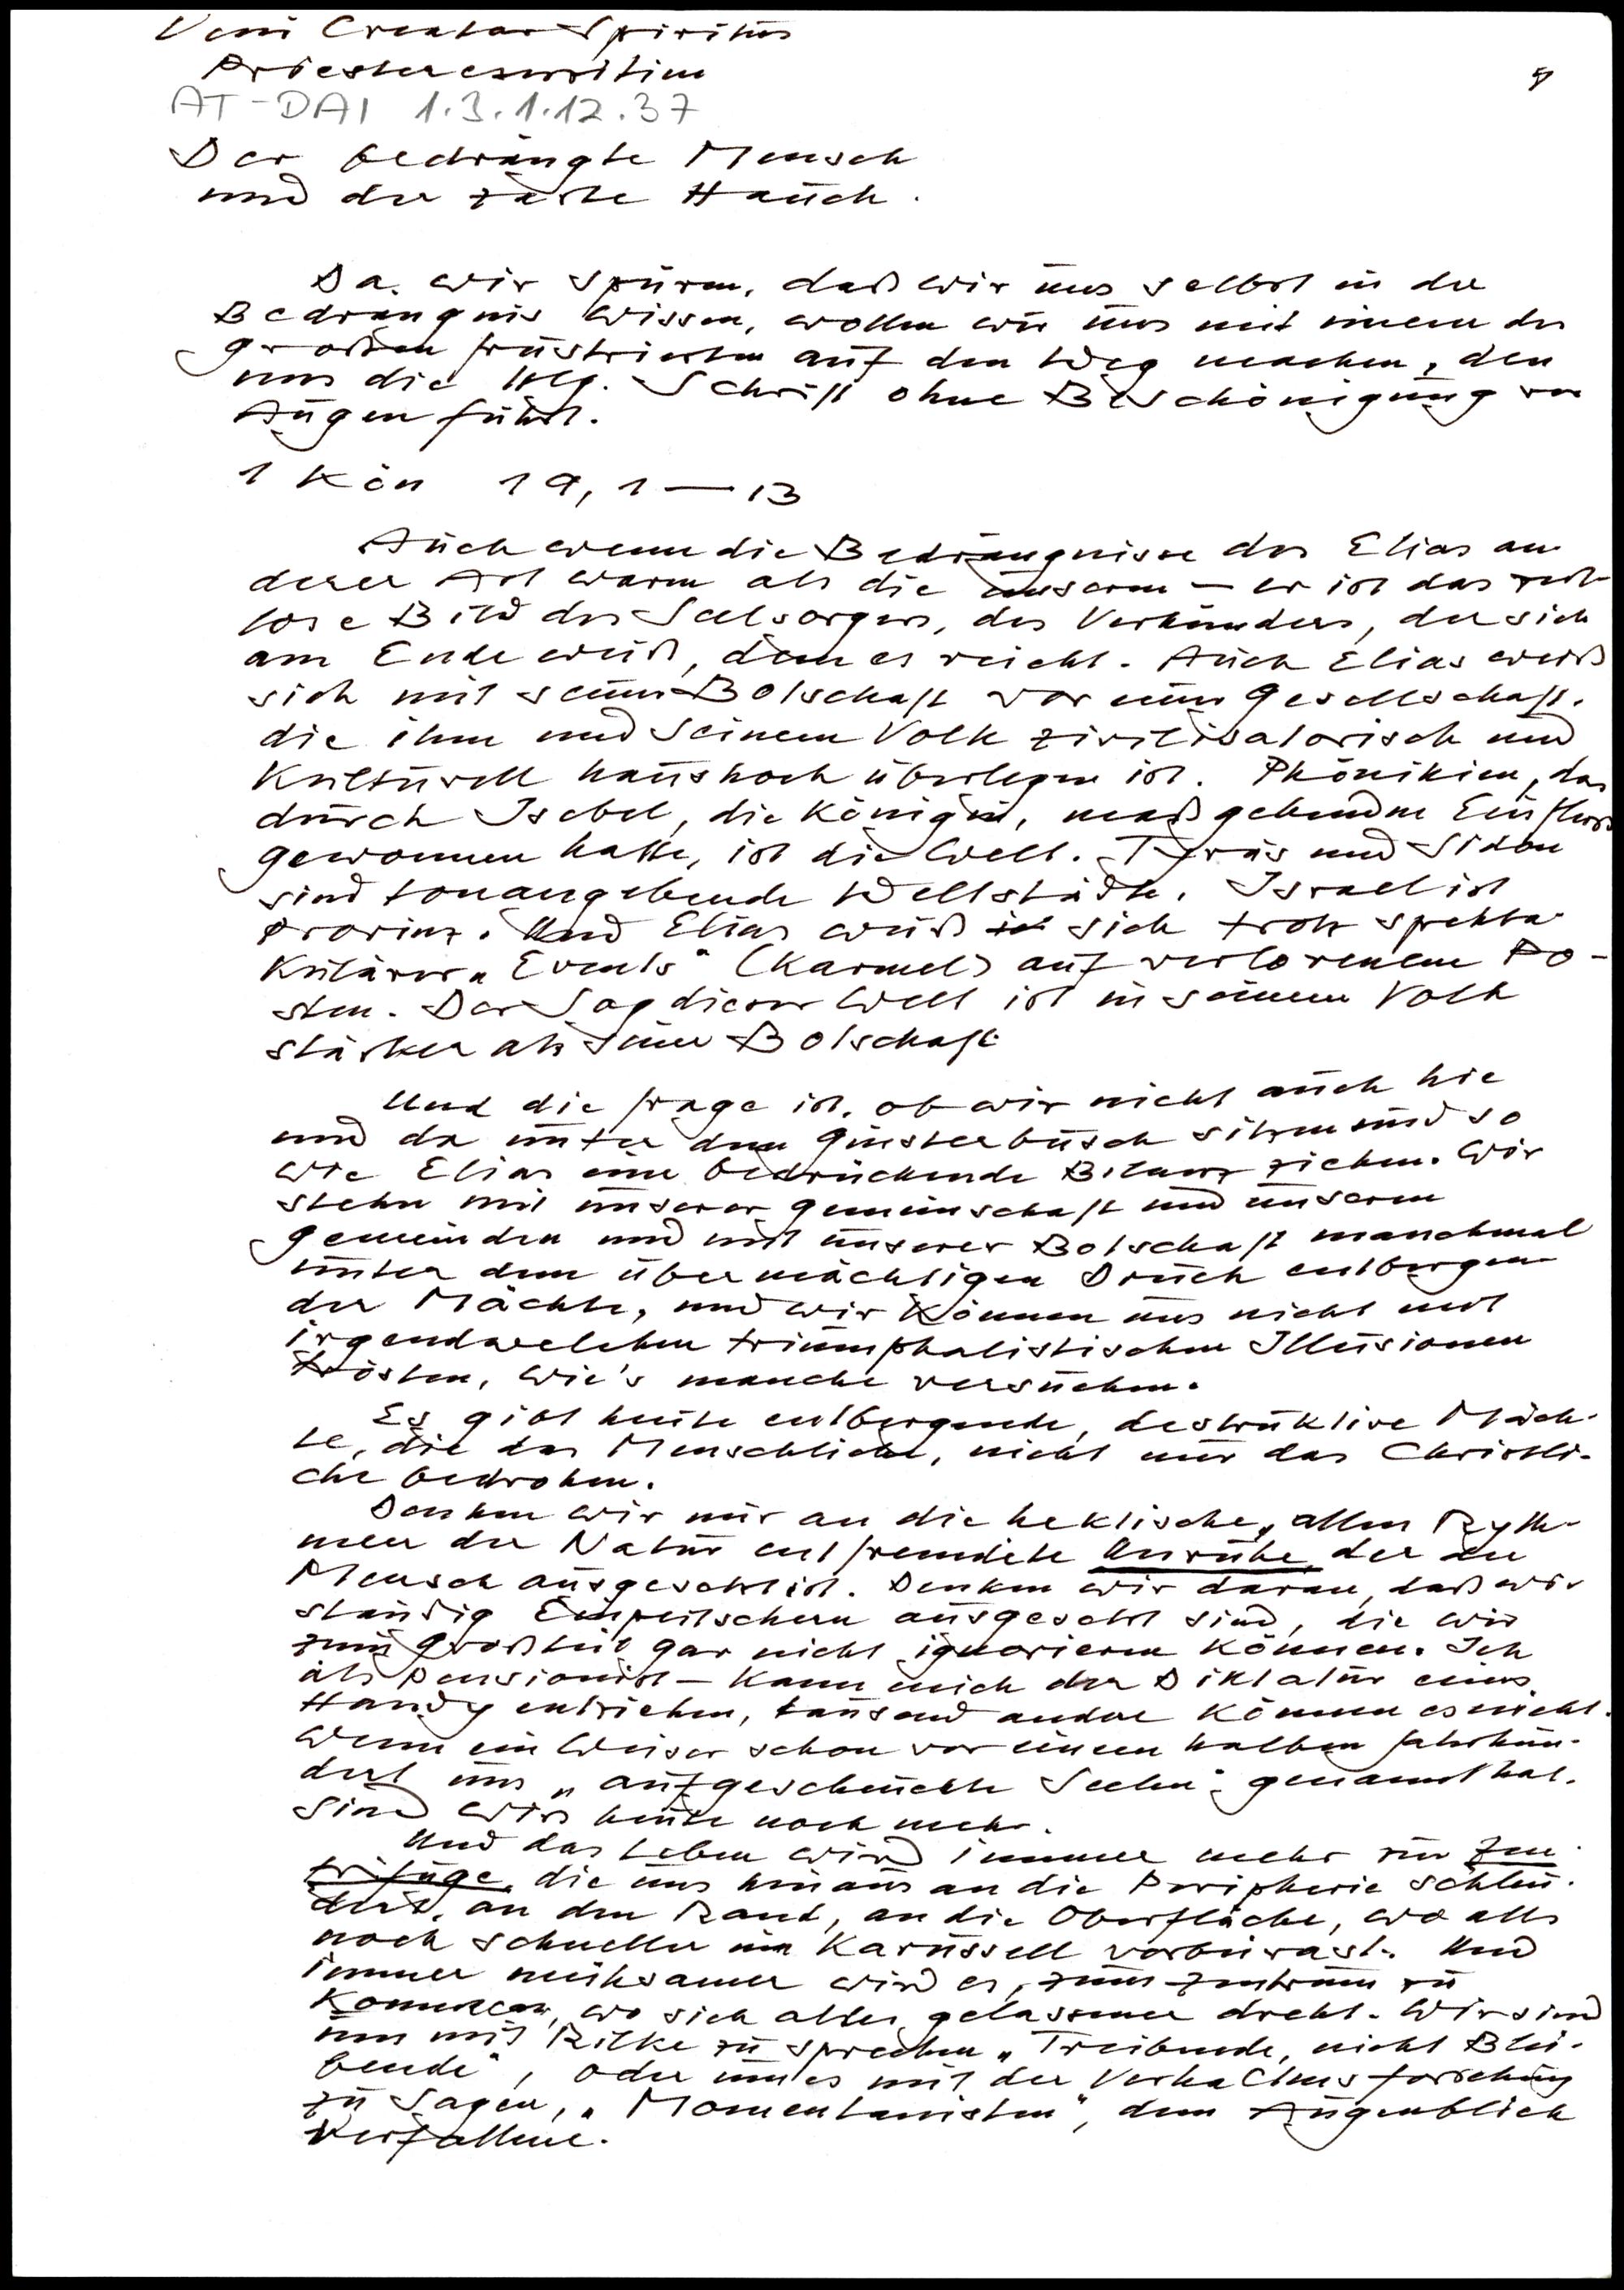 Veni Creator Spiritus
Priesterexerzitien
5
AT-DAI 1.3.1.12.37
Der bedrängte Mensch
und der zarte Hauch.
Da wir spüren, daß wir uns selbst in der
Bedrängnis wissen, wollen wir uns mit einem der
großen Frustrierten auf den Weg machen, den
uns die Hlg. Schrift ohne Beschönigung vor
Augen führt.
1 Kön 19, 1 — 13
Auch wenn die Bedrängnisse des Elias an-
derer Art waren als die unseren — er ist das
lose Bild des Seelsorgers, des Verkünders, der sich
am Ende weiß, dem es reicht. Auch Elias weiß
sich mit seiner Botschaft vor einer Gesellschaft,
die ihm und seinem Volk zivilisatorisch und
kulturell haushoch überlegen ist. Phönikien, das
durch Isebel, die Königin, maßgebenden Einfluss
gewonnen hatte, ist die Welt. Tyrus und Sidon
sind tonangebende Weltstädte. Israel ist
Provinz. Und Elias weiß sich trotz spekta-
kulärer „Events" (Karmel) auf verlorenem Po-
sten. Der Sog dieser Welt ist in seinem Volk
stärker als seine Botschaft.
Und die Frage ist, ob wir nicht auch hie
und da unter dem Ginsterbusch sitzen und so
wie Elias eine bedrückende Bilanz ziehen. Wir
stehn mit unserer Gemeinschaft und unseren
Gemeinden und mit unserer Botschaft manchmal
unter dem übermächtigen Druck entbergen-
der Mächte, und wir können uns nicht mit
irgendwelchen triumphalistischen Illusionen
trösten, wie's manche versuchen.
Es gibt heute entbergende, destruktive Mäch-
te, die das Menschliche, nicht nur das Christli-
che bedrohen.
Denken wir nur an die hektische, allen Ryth-
men der Natur entfremdete Unruhe, der der
Mensch ausgesetzt ist. Denken wir daran, daß wir
ständig Einpeitschern ausgesetzt sind, die wir
zum Großteil gar nicht ignorieren können. Ich
als Pensionist — kann mich der Diktatur eines
Handy entziehen, tausend andere können es nicht.
Wenn ein Weiser schon vor einem halben Jahrhun-
dert uns „aufgescheuchte Seelen" genannt hat,
sind wirs heute noch mehr.
Und das Leben wird immer mehr zur Zen-
trifuge, die uns hinaus an die Peripherie schleu-
dert, an den Rand, an die Oberfläche, wo alls
noch schneller im Karussell vorbeirast. Und
immer mühsamer wird es, zum Zentrum zu
kommen, wo sich alles gelassener dreht. Wir sind
um mit Rilke zu sprechen „Treibende, nicht Blei-
bende", oder um es mit der Verhaltensforschung
zu sagen, „Momentanisten", dem Augenblick
Verfallene.